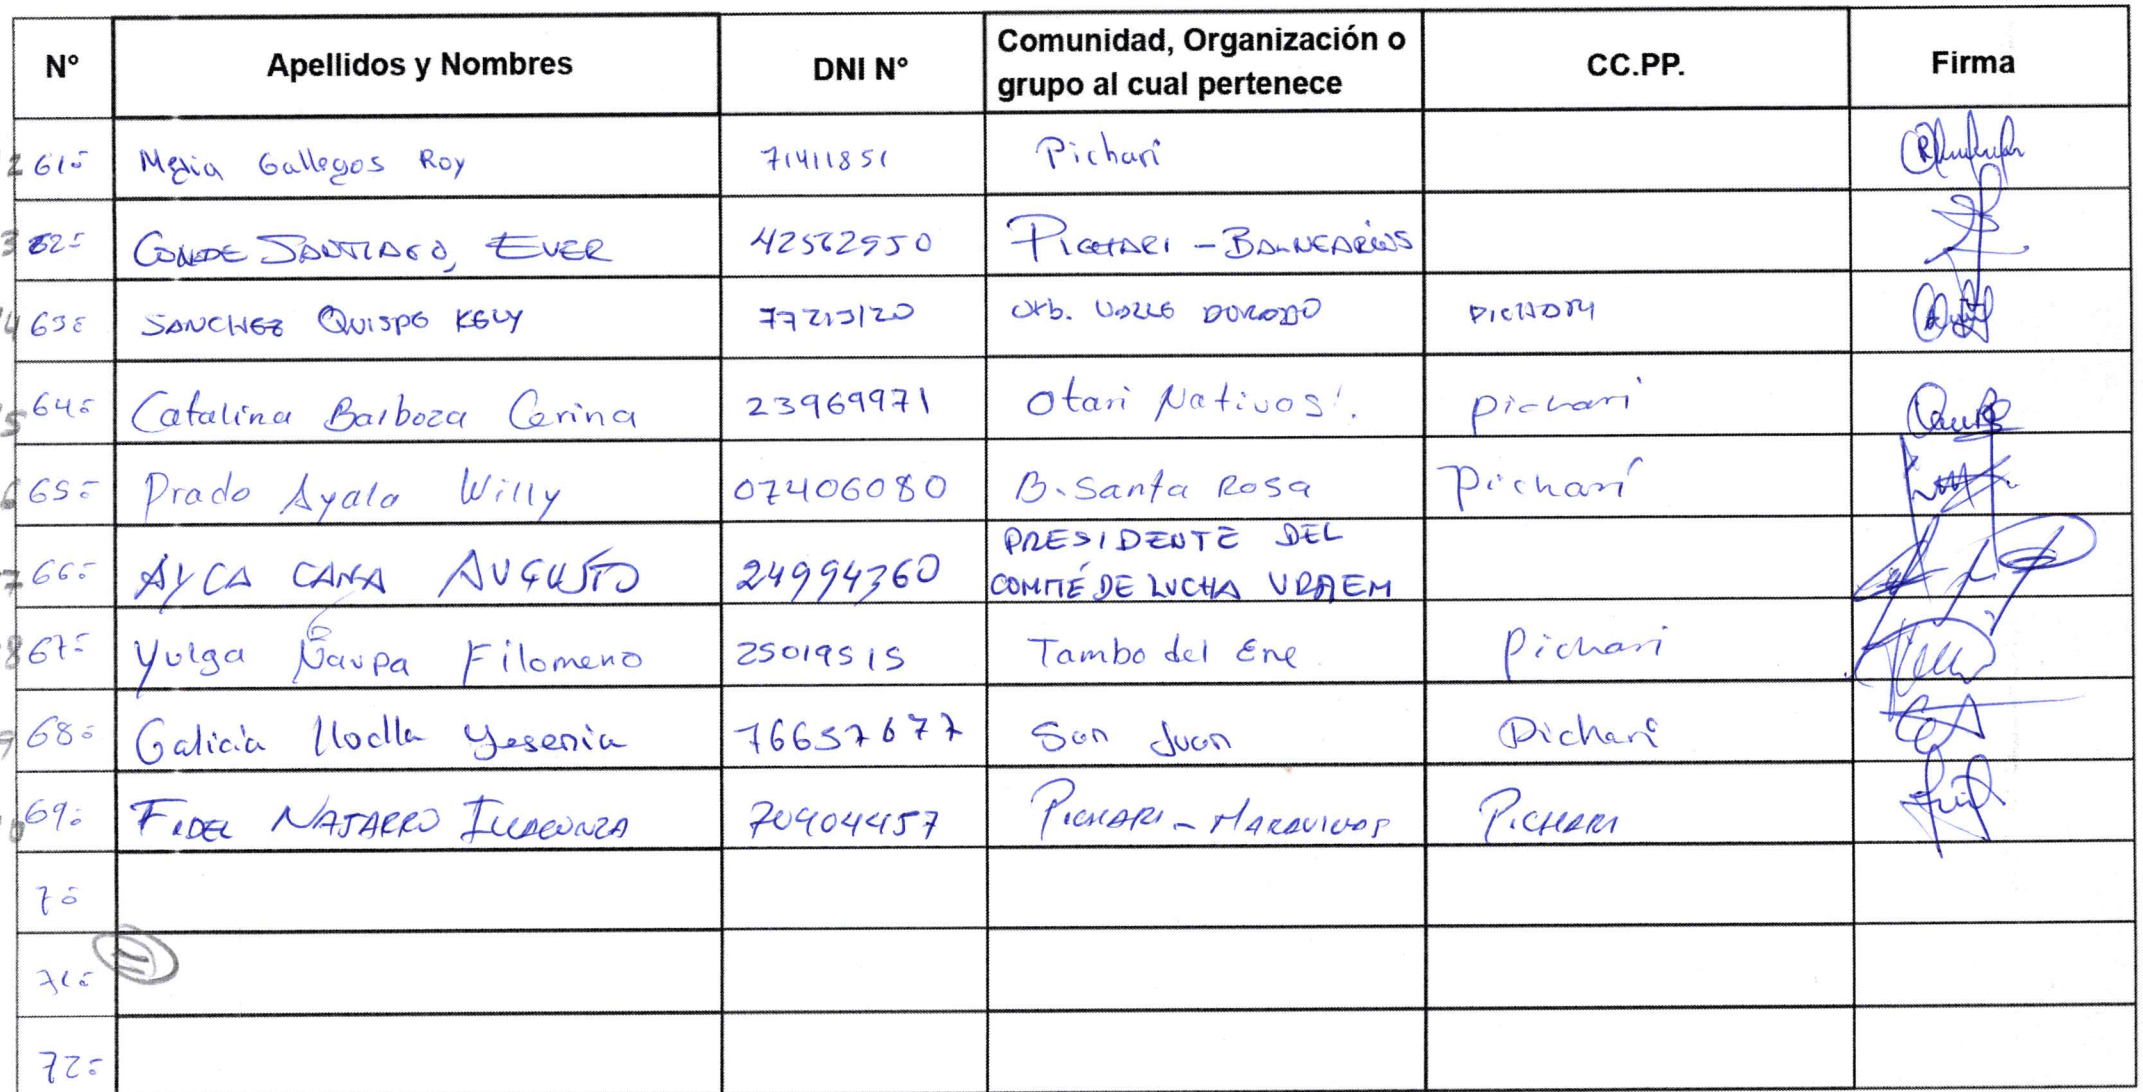 N° Apellidos y Nombres DNI N° Comunidad, Organización o grupo al cual pertenece CC.PP. Firma
61- Mejia Gallegos Roy 71411851 Pichari
62- CONDE SANTIAGO, EVER 42562950 PICHARI - BALNEARIOS
63- SANCHEZ QUISPE KELY 77213120 Urb. VALLE DORADO PICHARI
64- Catalina Barboza Cerina 23969971 Otari Nativos. Pichari
65- Prado Ayala Willy 07406080 B. Santa Rosa Pichari
66- AYCA CANA AUGUSTO 24994360 PRESIDENTE DEL COMITÉ DE LUCHA VRAEM
67- Yulga Ñaupa Filomeno 25019515 Tambo del Ene Pichari
68- Galicia Llaclla Yesenia 76657677 San Juan Pichari
69- FIDEL NAJARRO 70904457 PICHARI - MARAVILLAS PICHARI
70
71-
72-